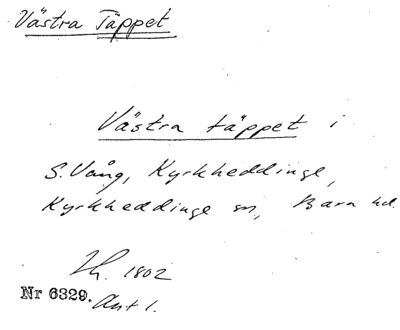 Västra Täppet
Västra täppet i
S. Vång, Kyrkheddinge,
Kyrkheddinge sn, Bara hd.
1802
Nr 6329. Akt 1.